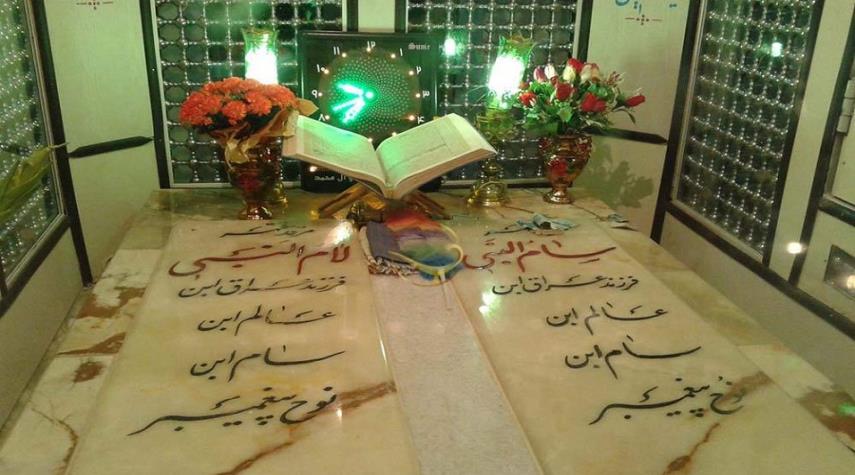 سام النبی
فرزند عراق ابن
عالم ابن
سام ابن
نوح پیغمبر
لام النبی
فرزند عراق ابن
عالم ابن
سام ابن
نوح پیغمبر